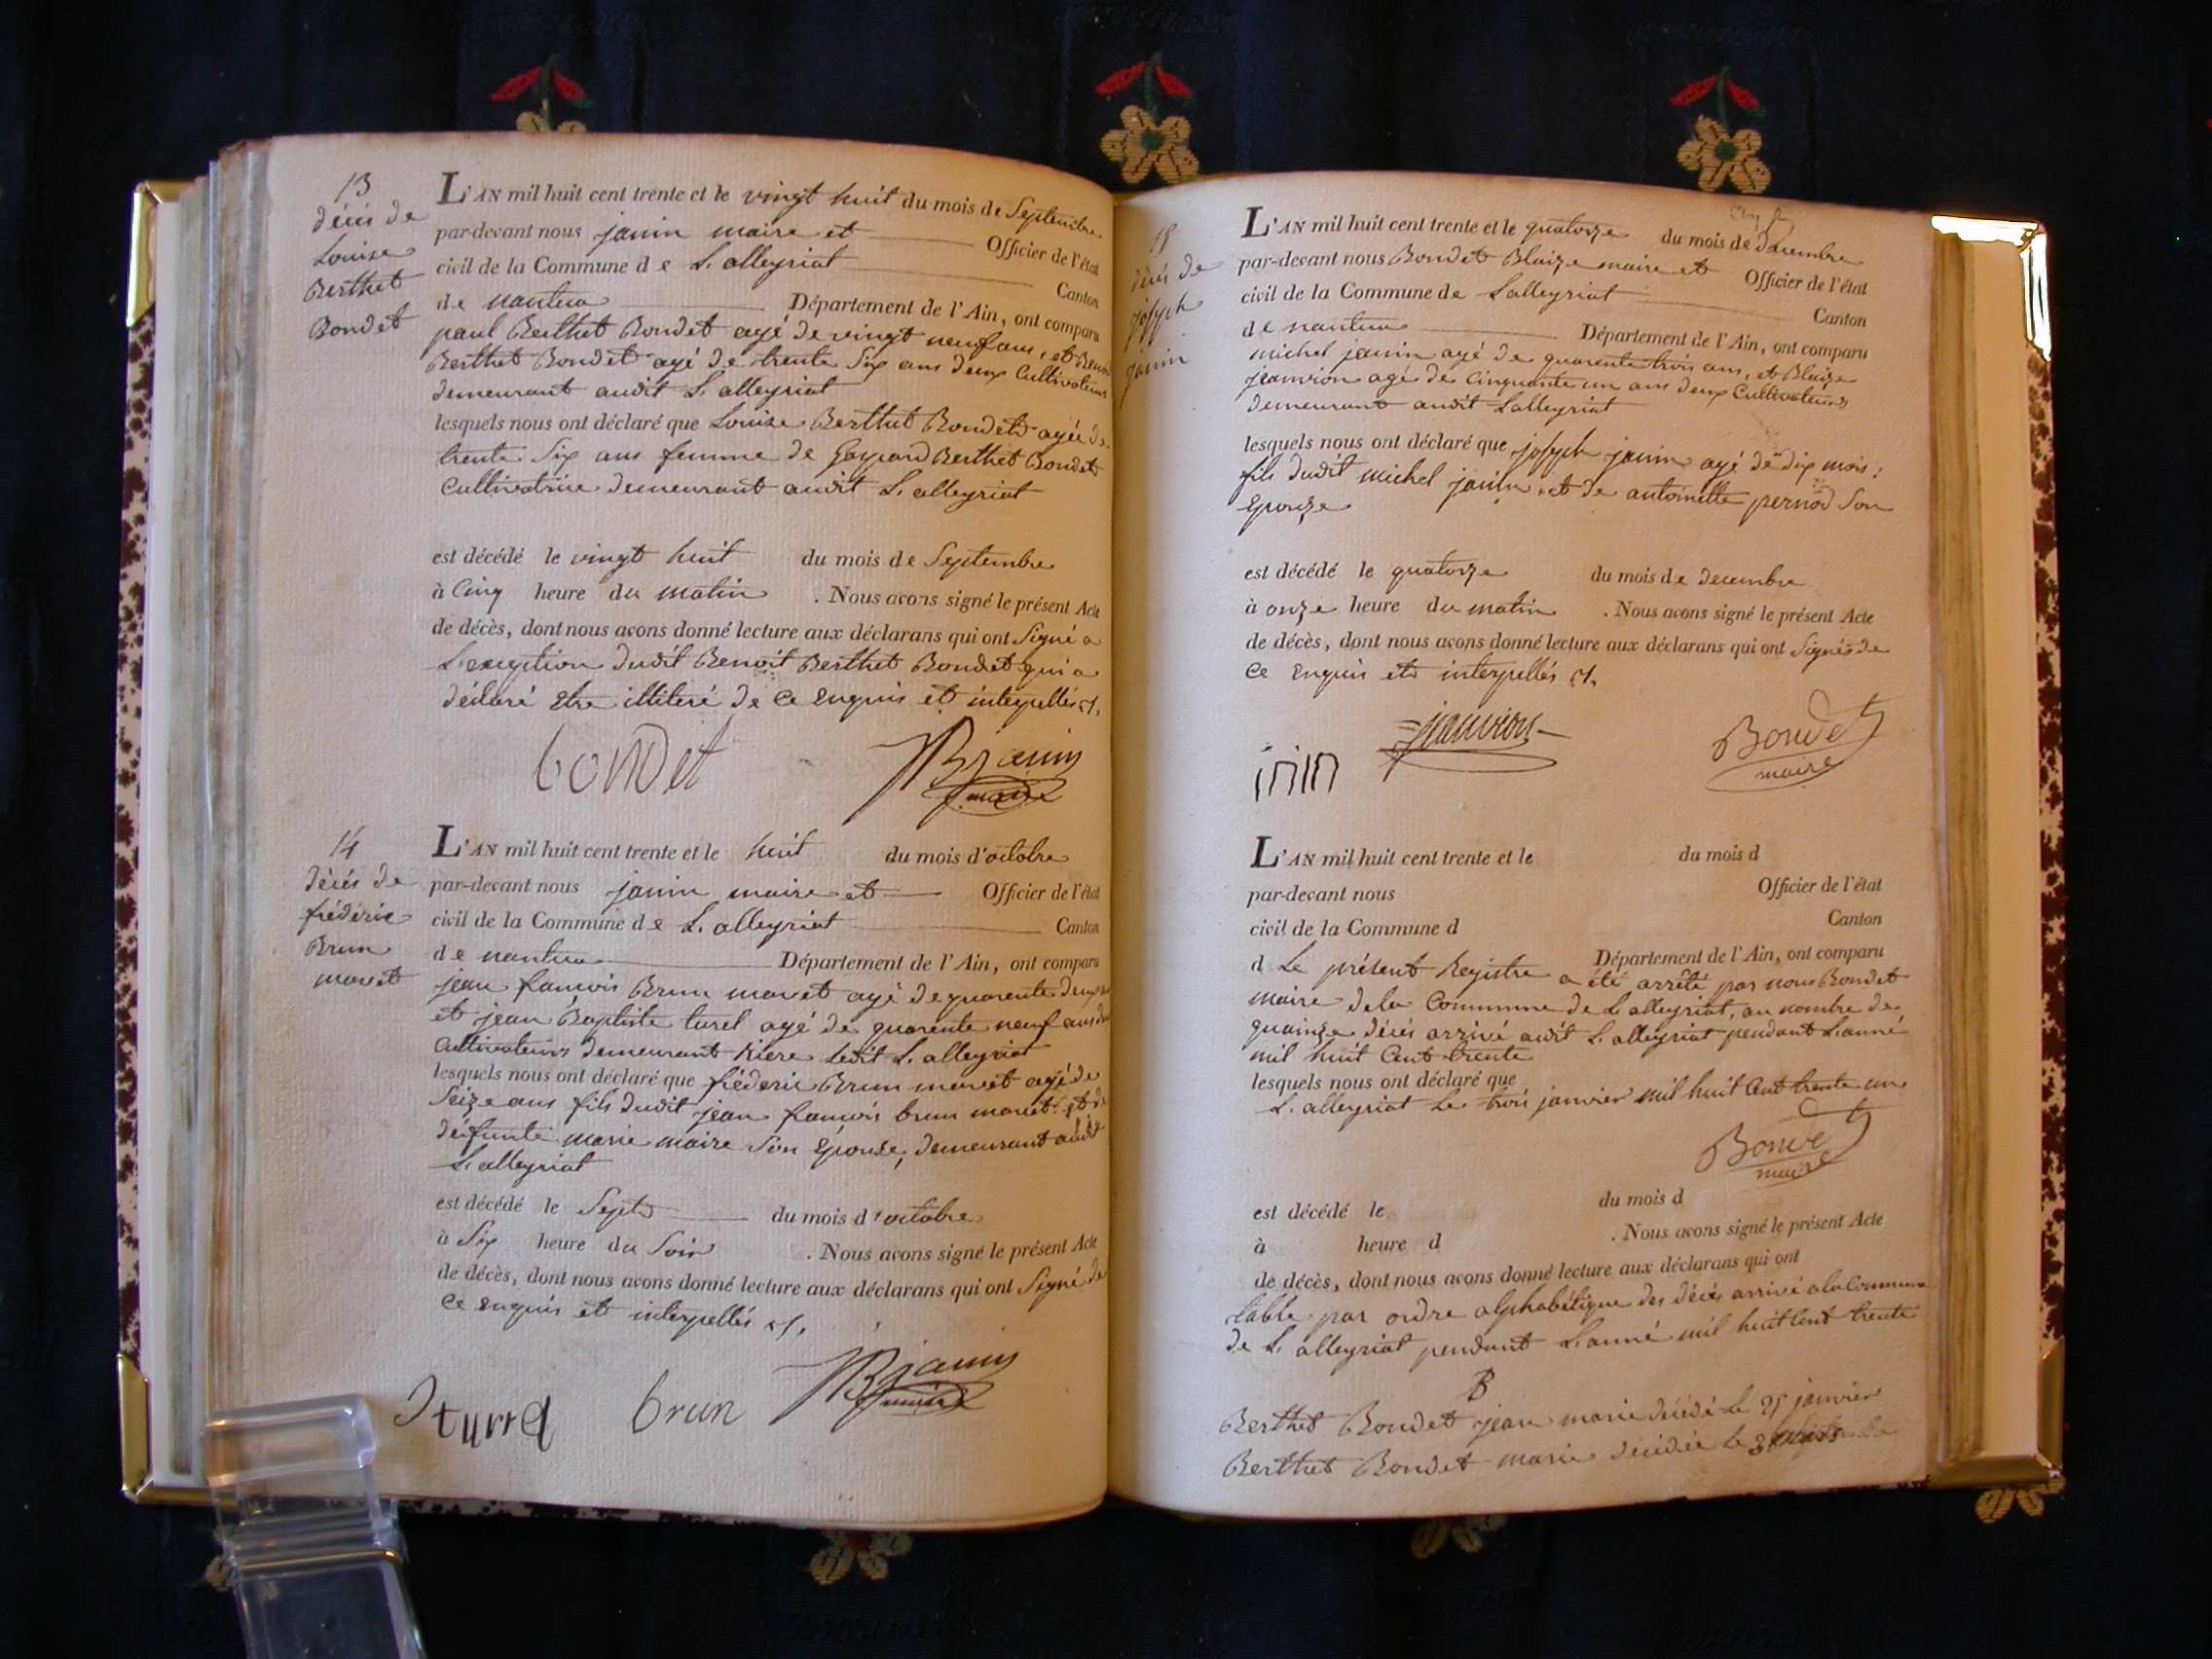 13
décès de
Louise
Berthet
Bondet
L'AN mil huit cent trente et le vingt huit du mois de Septembre
par-devant nous janin maire et Officier de l'état
civil de la Commune de L'alleyriat Canton
de nantua Département de l'Ain, ont comparu
paul Berthet Bondet agé de vingt neuf ans, et Benoit
Berthet Bondet agé de trente Six ans deux Cultivateurs
demeurant audit L'alleyriat
lesquels nous ont déclaré que Louise Berthet Bondet agée de
trente Six ans femme de Gaspard Berthet Bondet
Cultivatrice demeurant audit L'alleyriat
est décédé le vingt huit du mois de Septembre
à Cinq heure du matin . Nous avons signé le présent Acte
de décès, dont nous avons donné lecture aux déclarans qui ont Signé a
L'exeption dudit Benoit Berthet Bondet qui a
déclaré Etre illiteré de Ce Enquis et interpellés
bondet JB janin
maire
14
décès de
fréderic
Brun
moret
L'AN mil huit cent trente et le huit du mois d'octobre
par-devant nous janin maire et Officier de l'état
civil de la Commune de L'alleyriat Canton
de nantua Département de l'Ain, ont comparu
jean francois Brun moret agé de quarente deux
et jean Baptiste turel agé de quarente neuf ans
Cultivateurs demeurant Riere ledit L'alleyriat
lesquels nous ont déclaré que fréderic Brun moret agé de
Seize ans fils dudit jean francois brun moret et de
défunte marie maire Son Epouse, demeurant audit
L'alleyriat
est décédé le Sept du mois d'octobre
à Six heure du Soir . Nous avons signé le présent Acte
de décès, dont nous avons donné lecture aux déclarans qui ont Signé de
Ce Enquis et interpellés
brun JB janin
maire
15
décès de
joseph
janin
L'AN mil huit cent trente et le quatorze du mois de Decembre
par-devant nous Bondet Blaize maire et Officier de l'état
civil de la Commune de Lalleyriat Canton
de nantua Département de l'Ain, ont comparu
michel janin agé de quarente trois ans, et Blaize
jeanvion agé de Cinquante un ans deux Cultivateurs
demeurant audit Lalleyriat
lesquels nous ont déclaré que joseph janin agé de dix mois
fils dudit michel janin et de antoinette pernod Son
Epouze
est décédé le quatorze du mois de decembre
à onze heure du matin . Nous avons signé le présent Acte
de décès, dont nous avons donné lecture aux déclarans qui ont Signés de
Ce Enquis et interpellés
jeanvion Bondet
maire
L'AN mil huit cent trente et le du mois d
par-devant nous Officier de l'état
civil de la Commune d Canton
d Département de l'Ain, ont comparu
Le présent Registre a été arrêté par nous Bondet
maire de la Commune de L'alleyriat, au nombre de
quainze décés arrivé audit L'alleyriat pendant L'anné
mil huit Cent trente
lesquels nous ont déclaré que
L'alleyriat le trois janvier mil huit Cent trente un
Bondet
maire
est décédé le du mois d
à heure d . Nous avons signé le présent Acte
de décès, dont nous avons donné lecture aux déclarans qui ont
table par ordre alphabétique des décés arrivé a la Commune
de L'alleyriat pendant L'anné mil huit Cent trente
B
Berthet Bondet jean marie décédé le janvier
Berthet Bondet marie décédée le